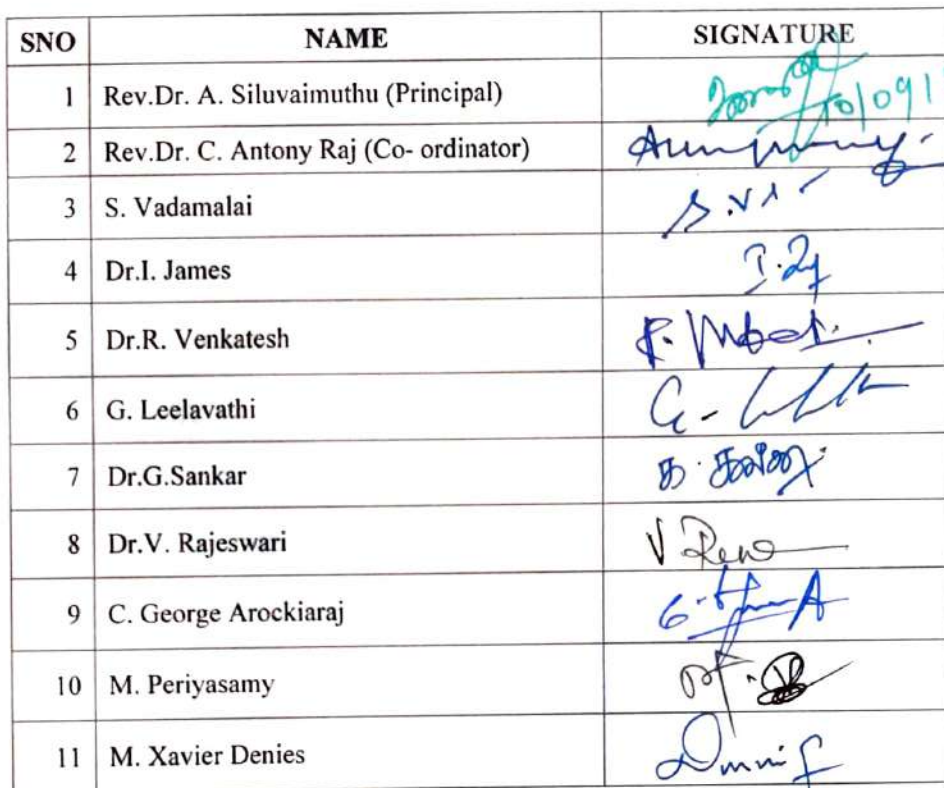 SNO NAME SIGNATURE
1 Rev.Dr. A. Siluvaimuthu (Principal) 10/09/
2 Rev.Dr. C. Antony Raj (Co- ordinator)
3 S. Vadamalai
4 Dr.I. James
5 Dr.R. Venkatesh
6 G. Leelavathi
7 Dr.G.Sankar
8 Dr.V. Rajeswari
9 C. George Arockiaraj
10 M. Periyasamy
11 M. Xavier Denies